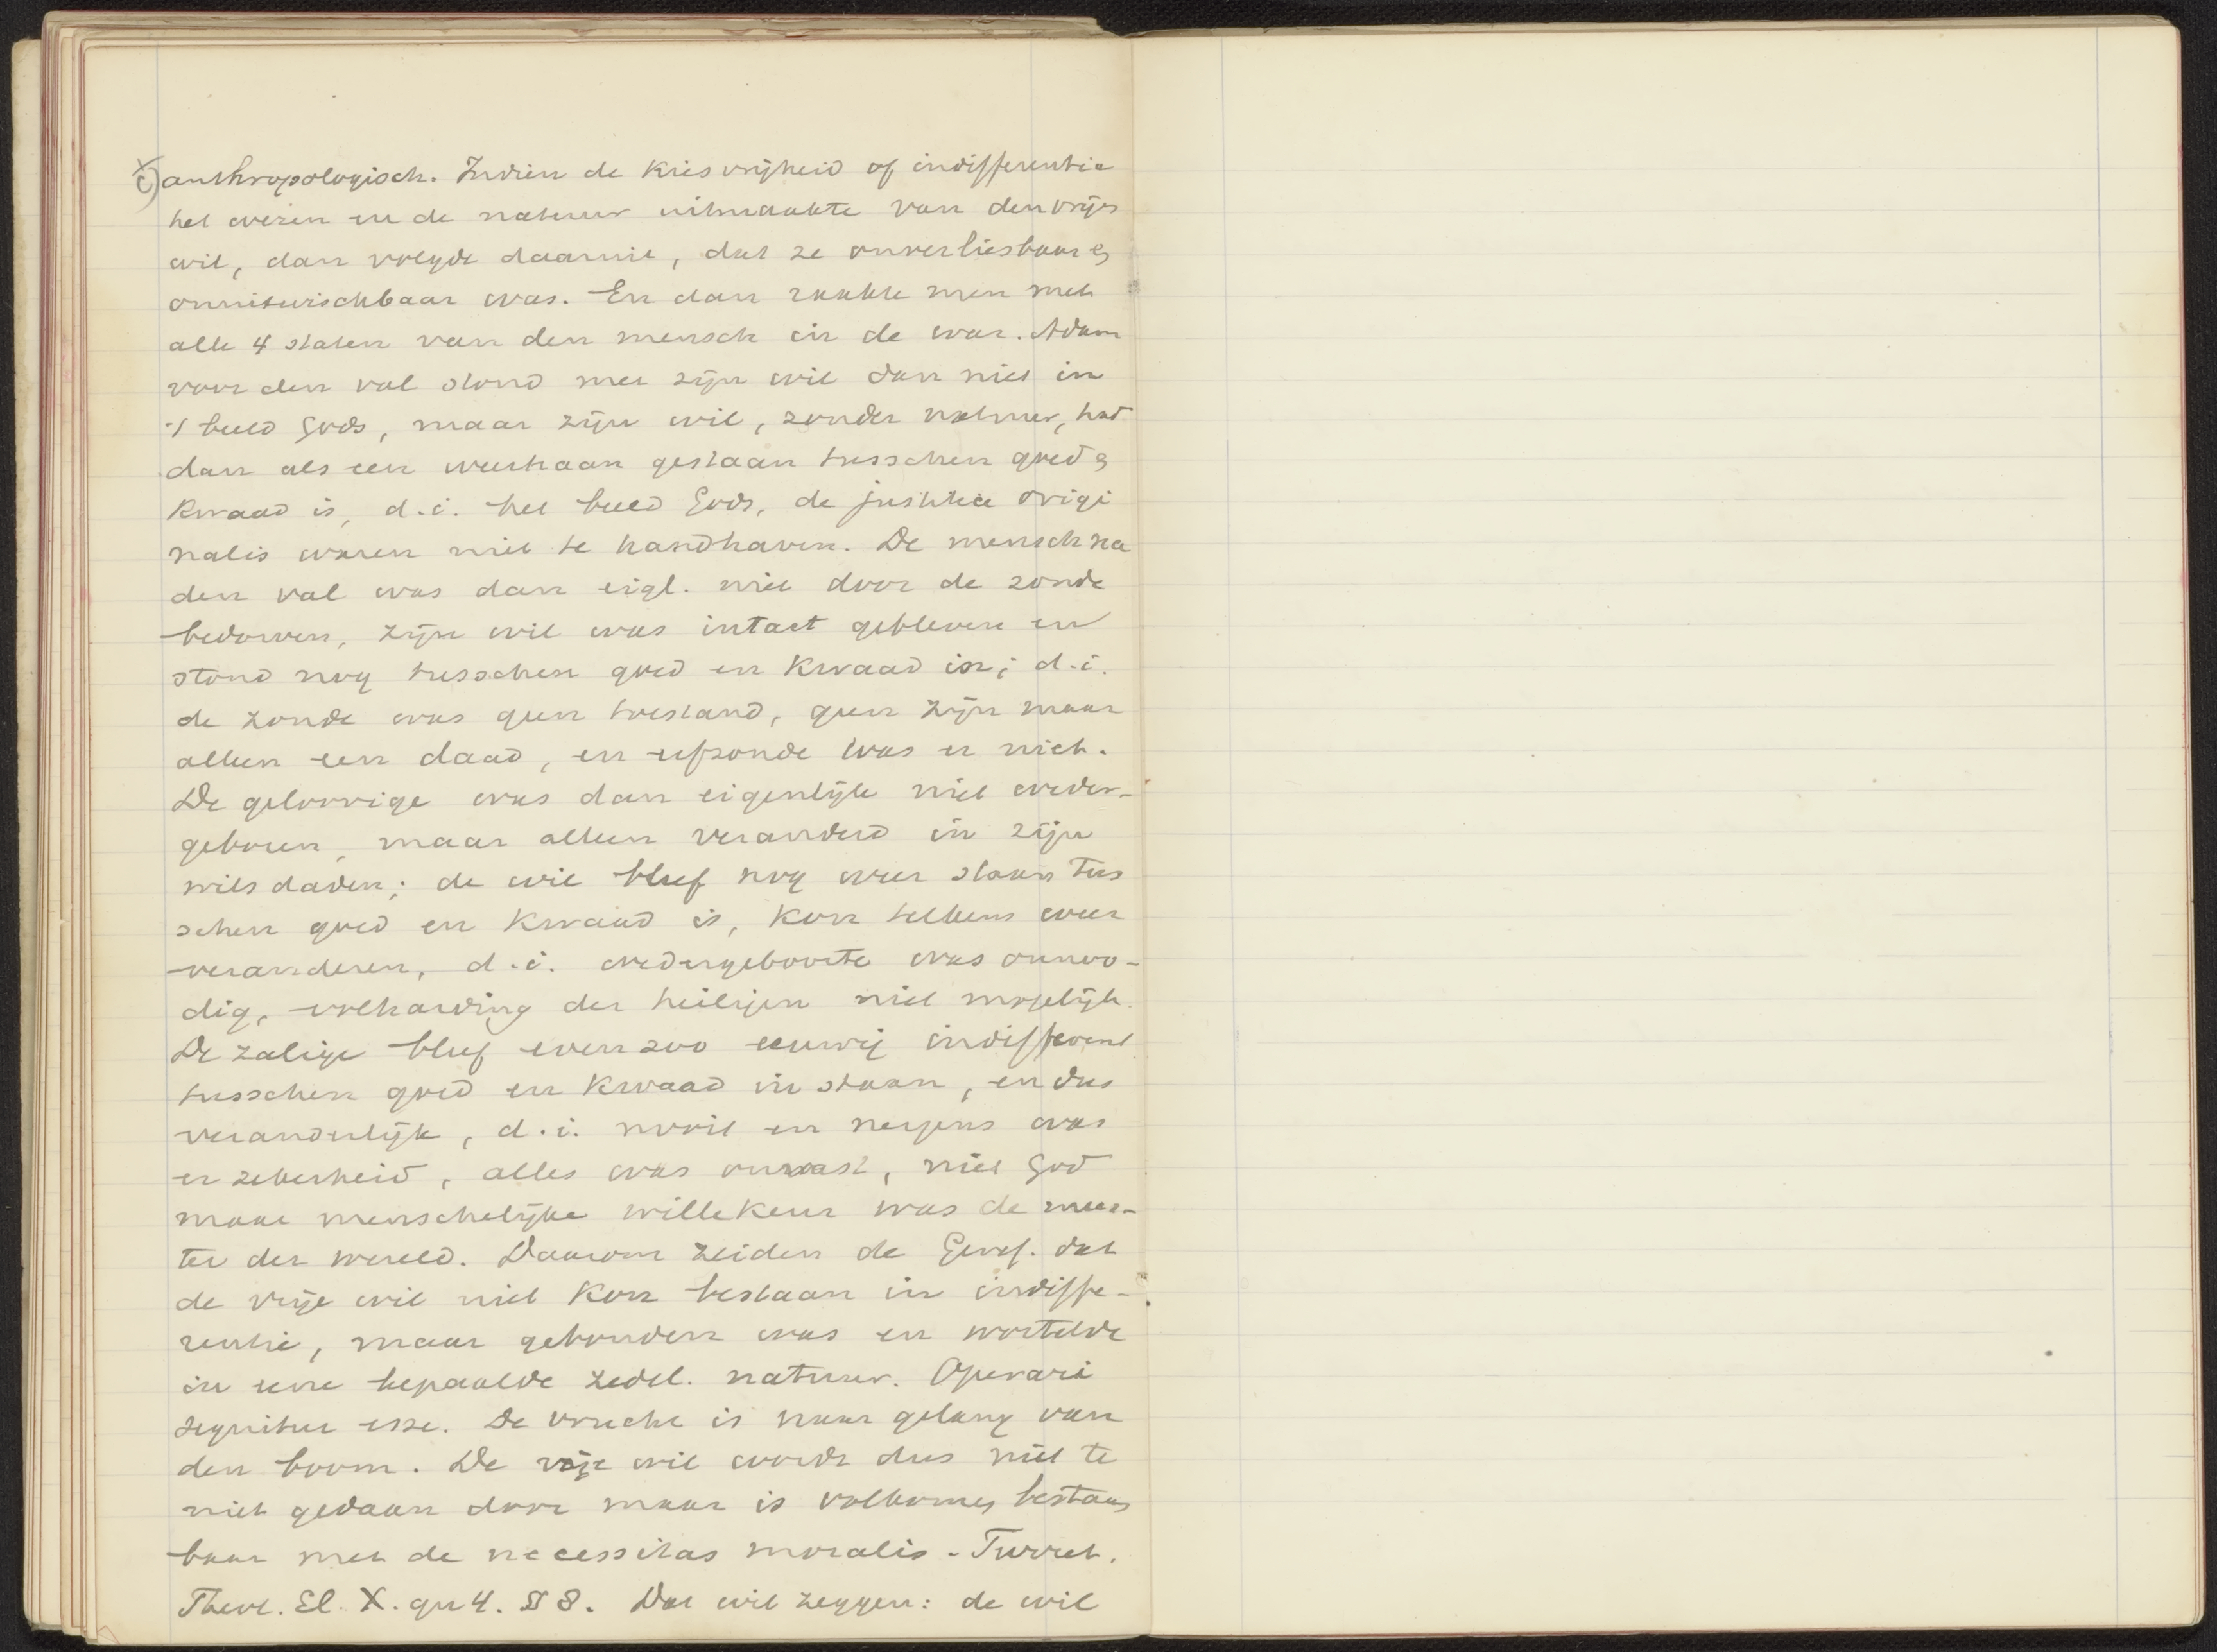 c) anthropologisch. Indien de kiesvrijheid of indifferentie
het wezen en de natuur uitmaakte van den vrijen
wil, dan volgde daaruit, dat ze onverliesbaar &
onuitwischbaar was. En dan raakte men met
alle 4 staten van den mensch in de war. Adam
voor den val stond met zijn wil dan niet in
't beeld Gods, maar zijn wil, zonder natuur, had
dan als een weerhaan gestaan tusschen goed &
kwaad in, d.i. het beeld Gods, de justitia origi
nalis waren niet te handhaven. De mensch na
den val was dan eigl. niet door de zonde
bedorven, zijn wil was intact gebleven en
stond nog tusschen goed en kwaad in; d.i.
de zonde was geen toestand, geen zijn maar
alleen een daad, en erfzonde was er niet.
De geloovige was dan eigenlijk niet weder-
geboren, maar alleen veranderd in zijn
wilsdaden; de wil bleef nog weer staan tus
schen goed en kwaad in, kon telkens weer
veranderen, d.i. wedergeboorte was onnoo-
dig, volharding der heiligen niet mogelijk.
De zalige bleef evenzoo eeuwig indifferent
tusschen goed en kwaad in staan, en dus
veranderlijk, d.i. nooit en nergens was
er zekerheid, alles was onvast, niet God
maar menschelijke willekeur was de mees-
ter der wereld. Daarom zeiden de Geref. dat
de vrije wil niet kon bestaan in indiffe-
rentie, maar gebonden was en wortelde
in eene bepaalde zedel. natuur. Operari
sequitur esse. De vrucht is naar gelang van
den boom. De vrije wil wordt dus niet te
niet gedaan door maar is volkomen bestaan
baar met de necessitas moralis - Turret.
Theol. El. X. qu 4. § 8. Dat wil zeggen: de wil